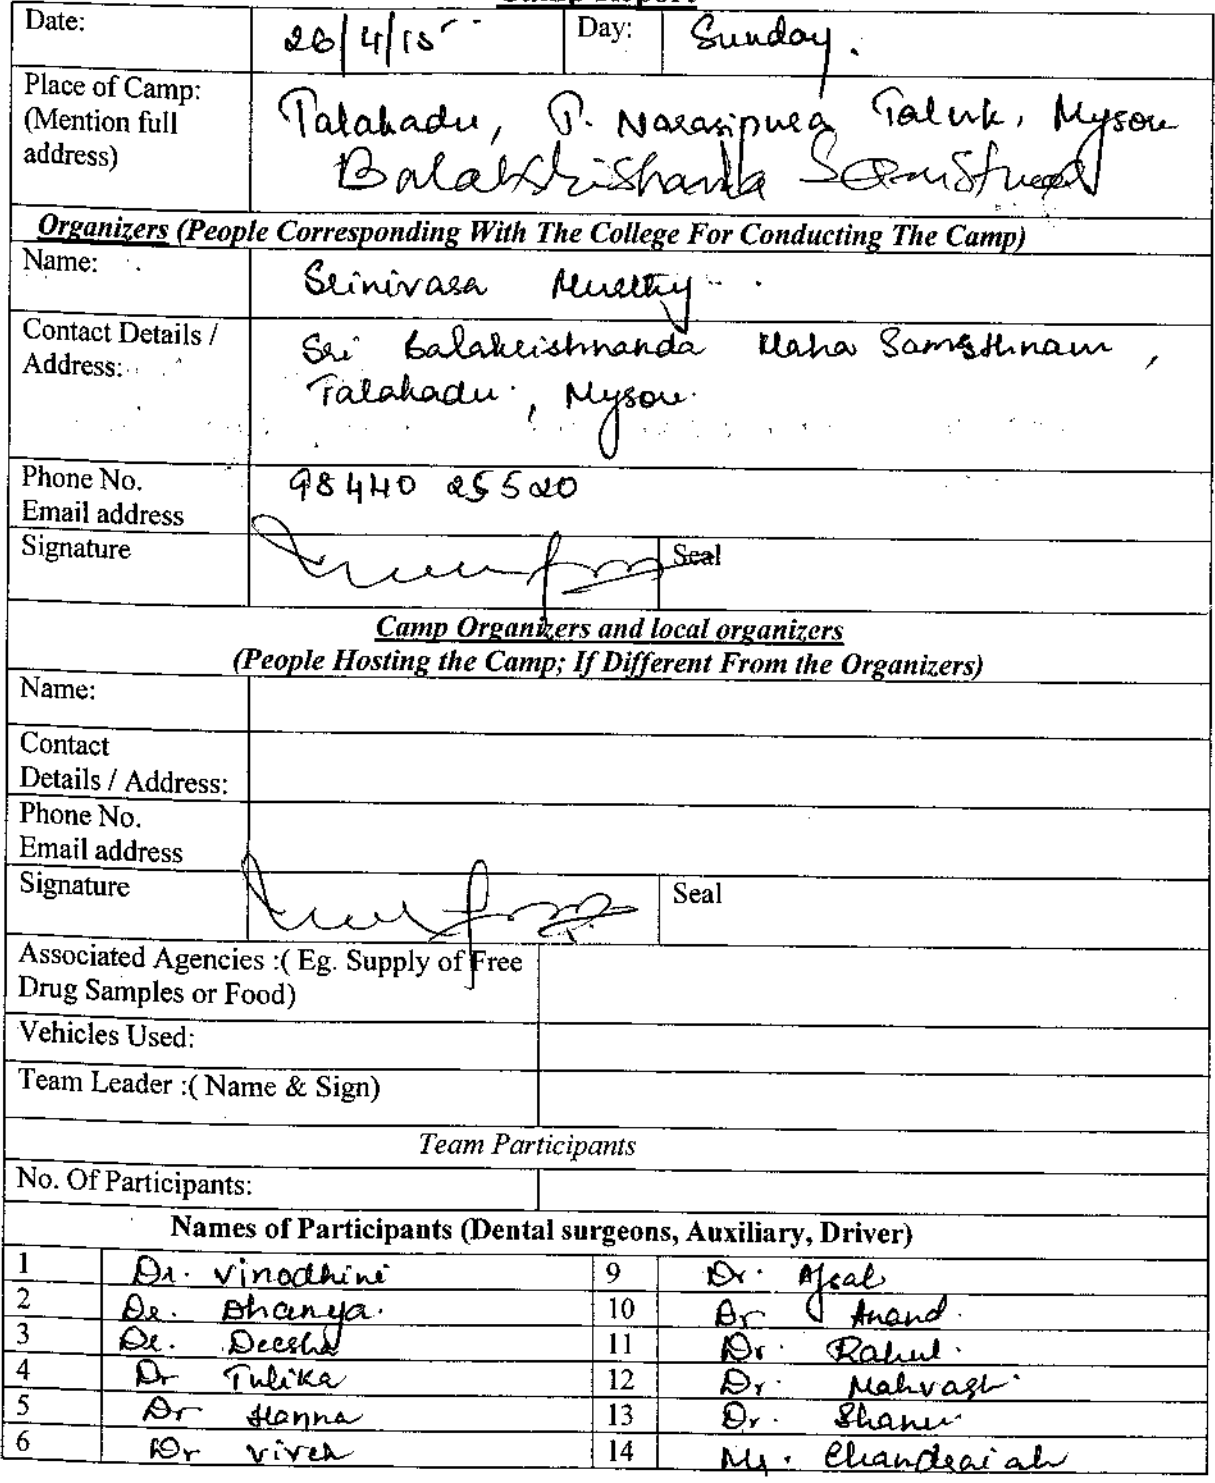 Camp Report
Date: 26/4/15 Day: Sunday.
Place of Camp:
(Mention full
address)
Talakadu, T. Narasipura Taluk, Mysore
Balakrishnanda
Organizers (People Corresponding With The College For Conducting The Camp)
Name: Srinivasa Murthy
Contact Details /
Address:
Sri Balakrishnanda Maha Samsthnam,
Talakadu, Mysore.
Phone No.
Email address
98440 25520
Signature Seal
Camp Organizers and local organizers
(People Hosting the Camp; If Different From the Organizers)
Name:
Contact
Details / Address:
Phone No.
Email address
Signature Seal
Associated Agencies :( Eg. Supply of Free
Drug Samples or Food)
Vehicles Used:
Team Leader :( Name & Sign)
Team Participants
No. Of Participants:
Names of Participants (Dental surgeons, Auxiliary, Driver)
1 Dr. Vinodhini 9 Dr. Afsal
2 Dr. Dhanya. 10 Dr Anand.
3 Dr. Deesha 11 Dr. Rahul.
4 Dr Tulika 12 Dr. Mahvash
5 Dr Hanna 13 Dr.
6 Dr Vivek 14 Mr. Chandraiah